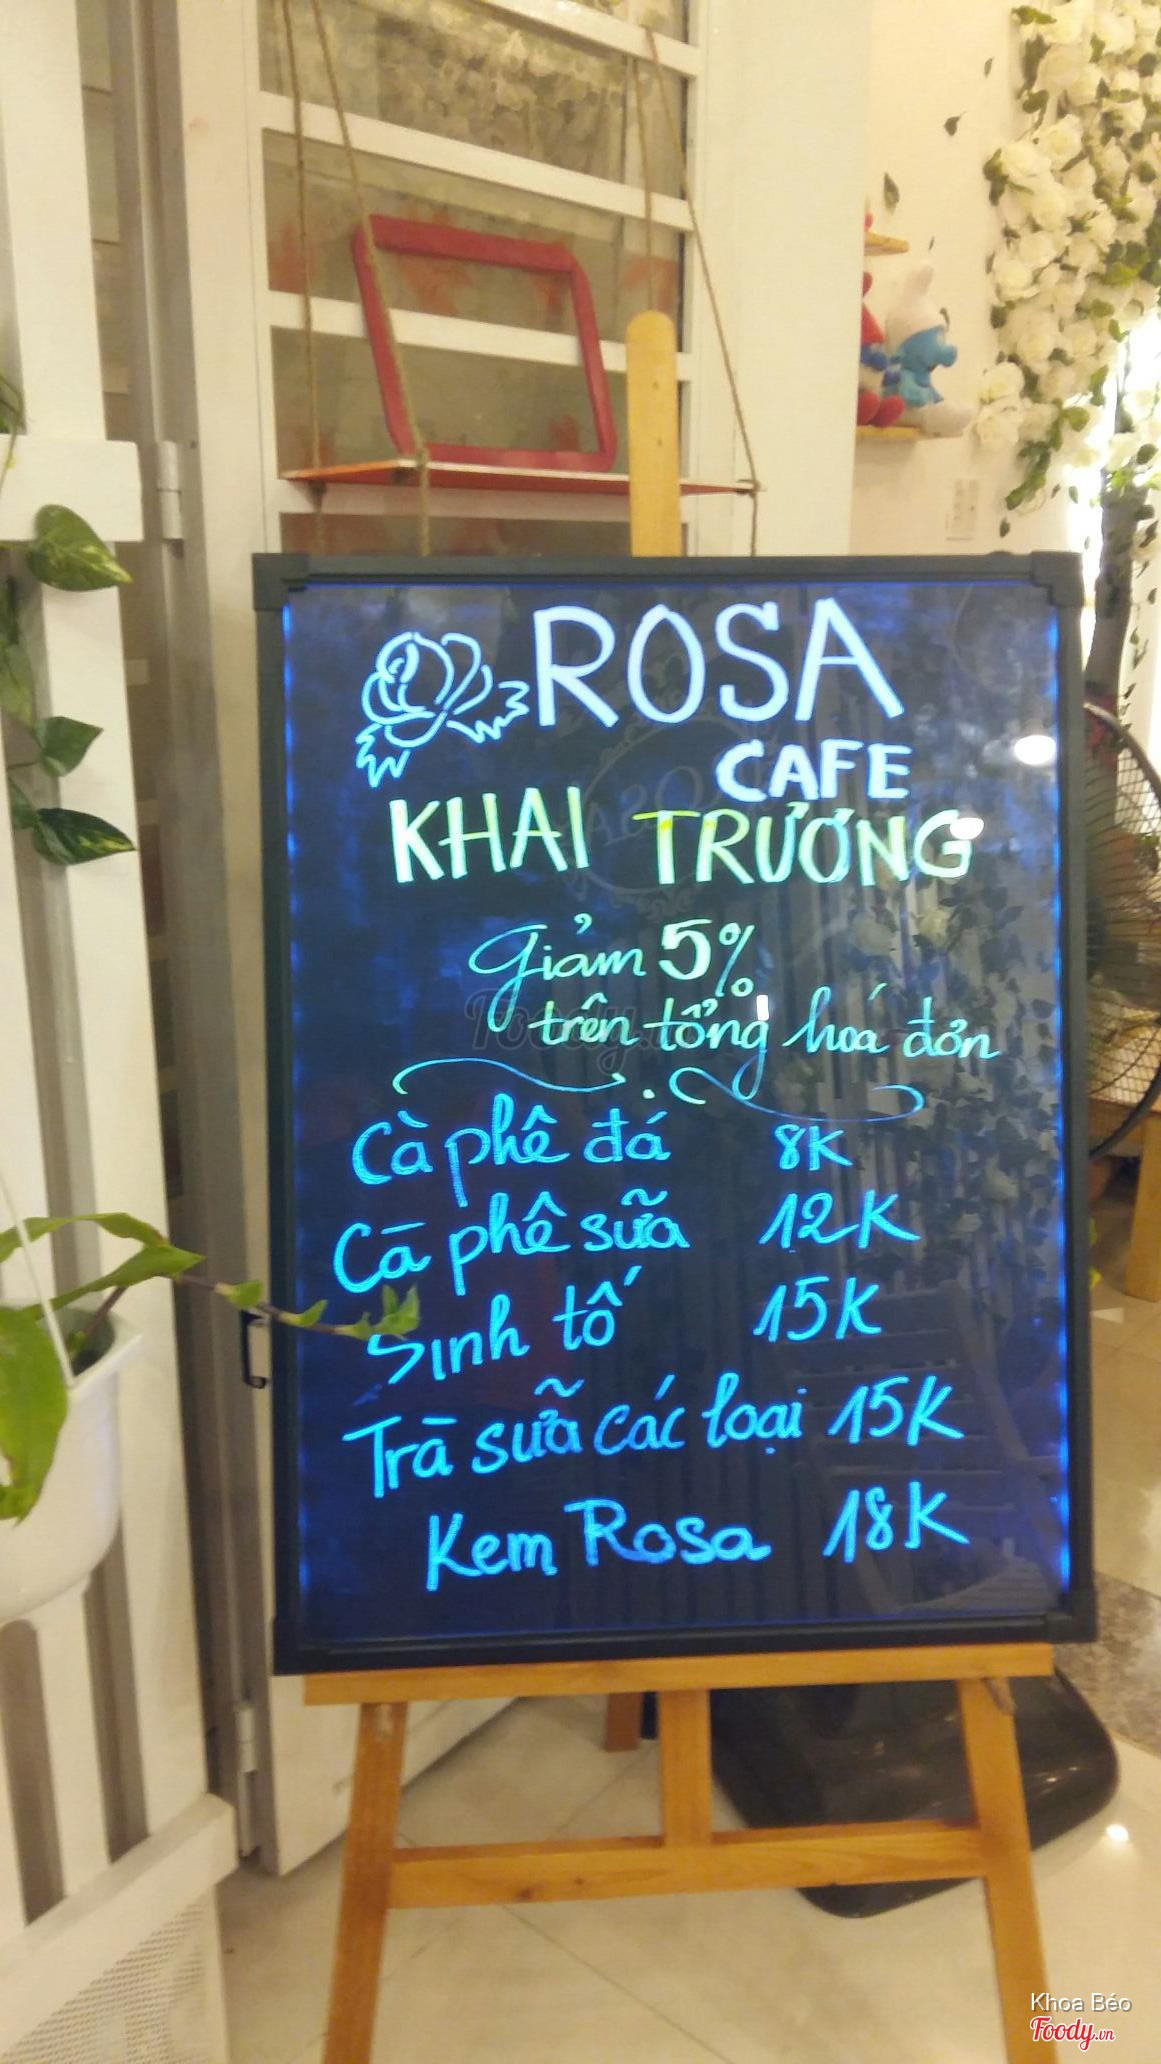 ROSA
CAFE
KHAI TRƯƠNG
Giảm 5%
trên tổng hoá đơn
Cà phê đá 8K
Cà phê sữa 12K
Sinh tố 15K
Trà sữa các loại 15K
Kem Rosa 18K
Khoa Béo
Foody.vn